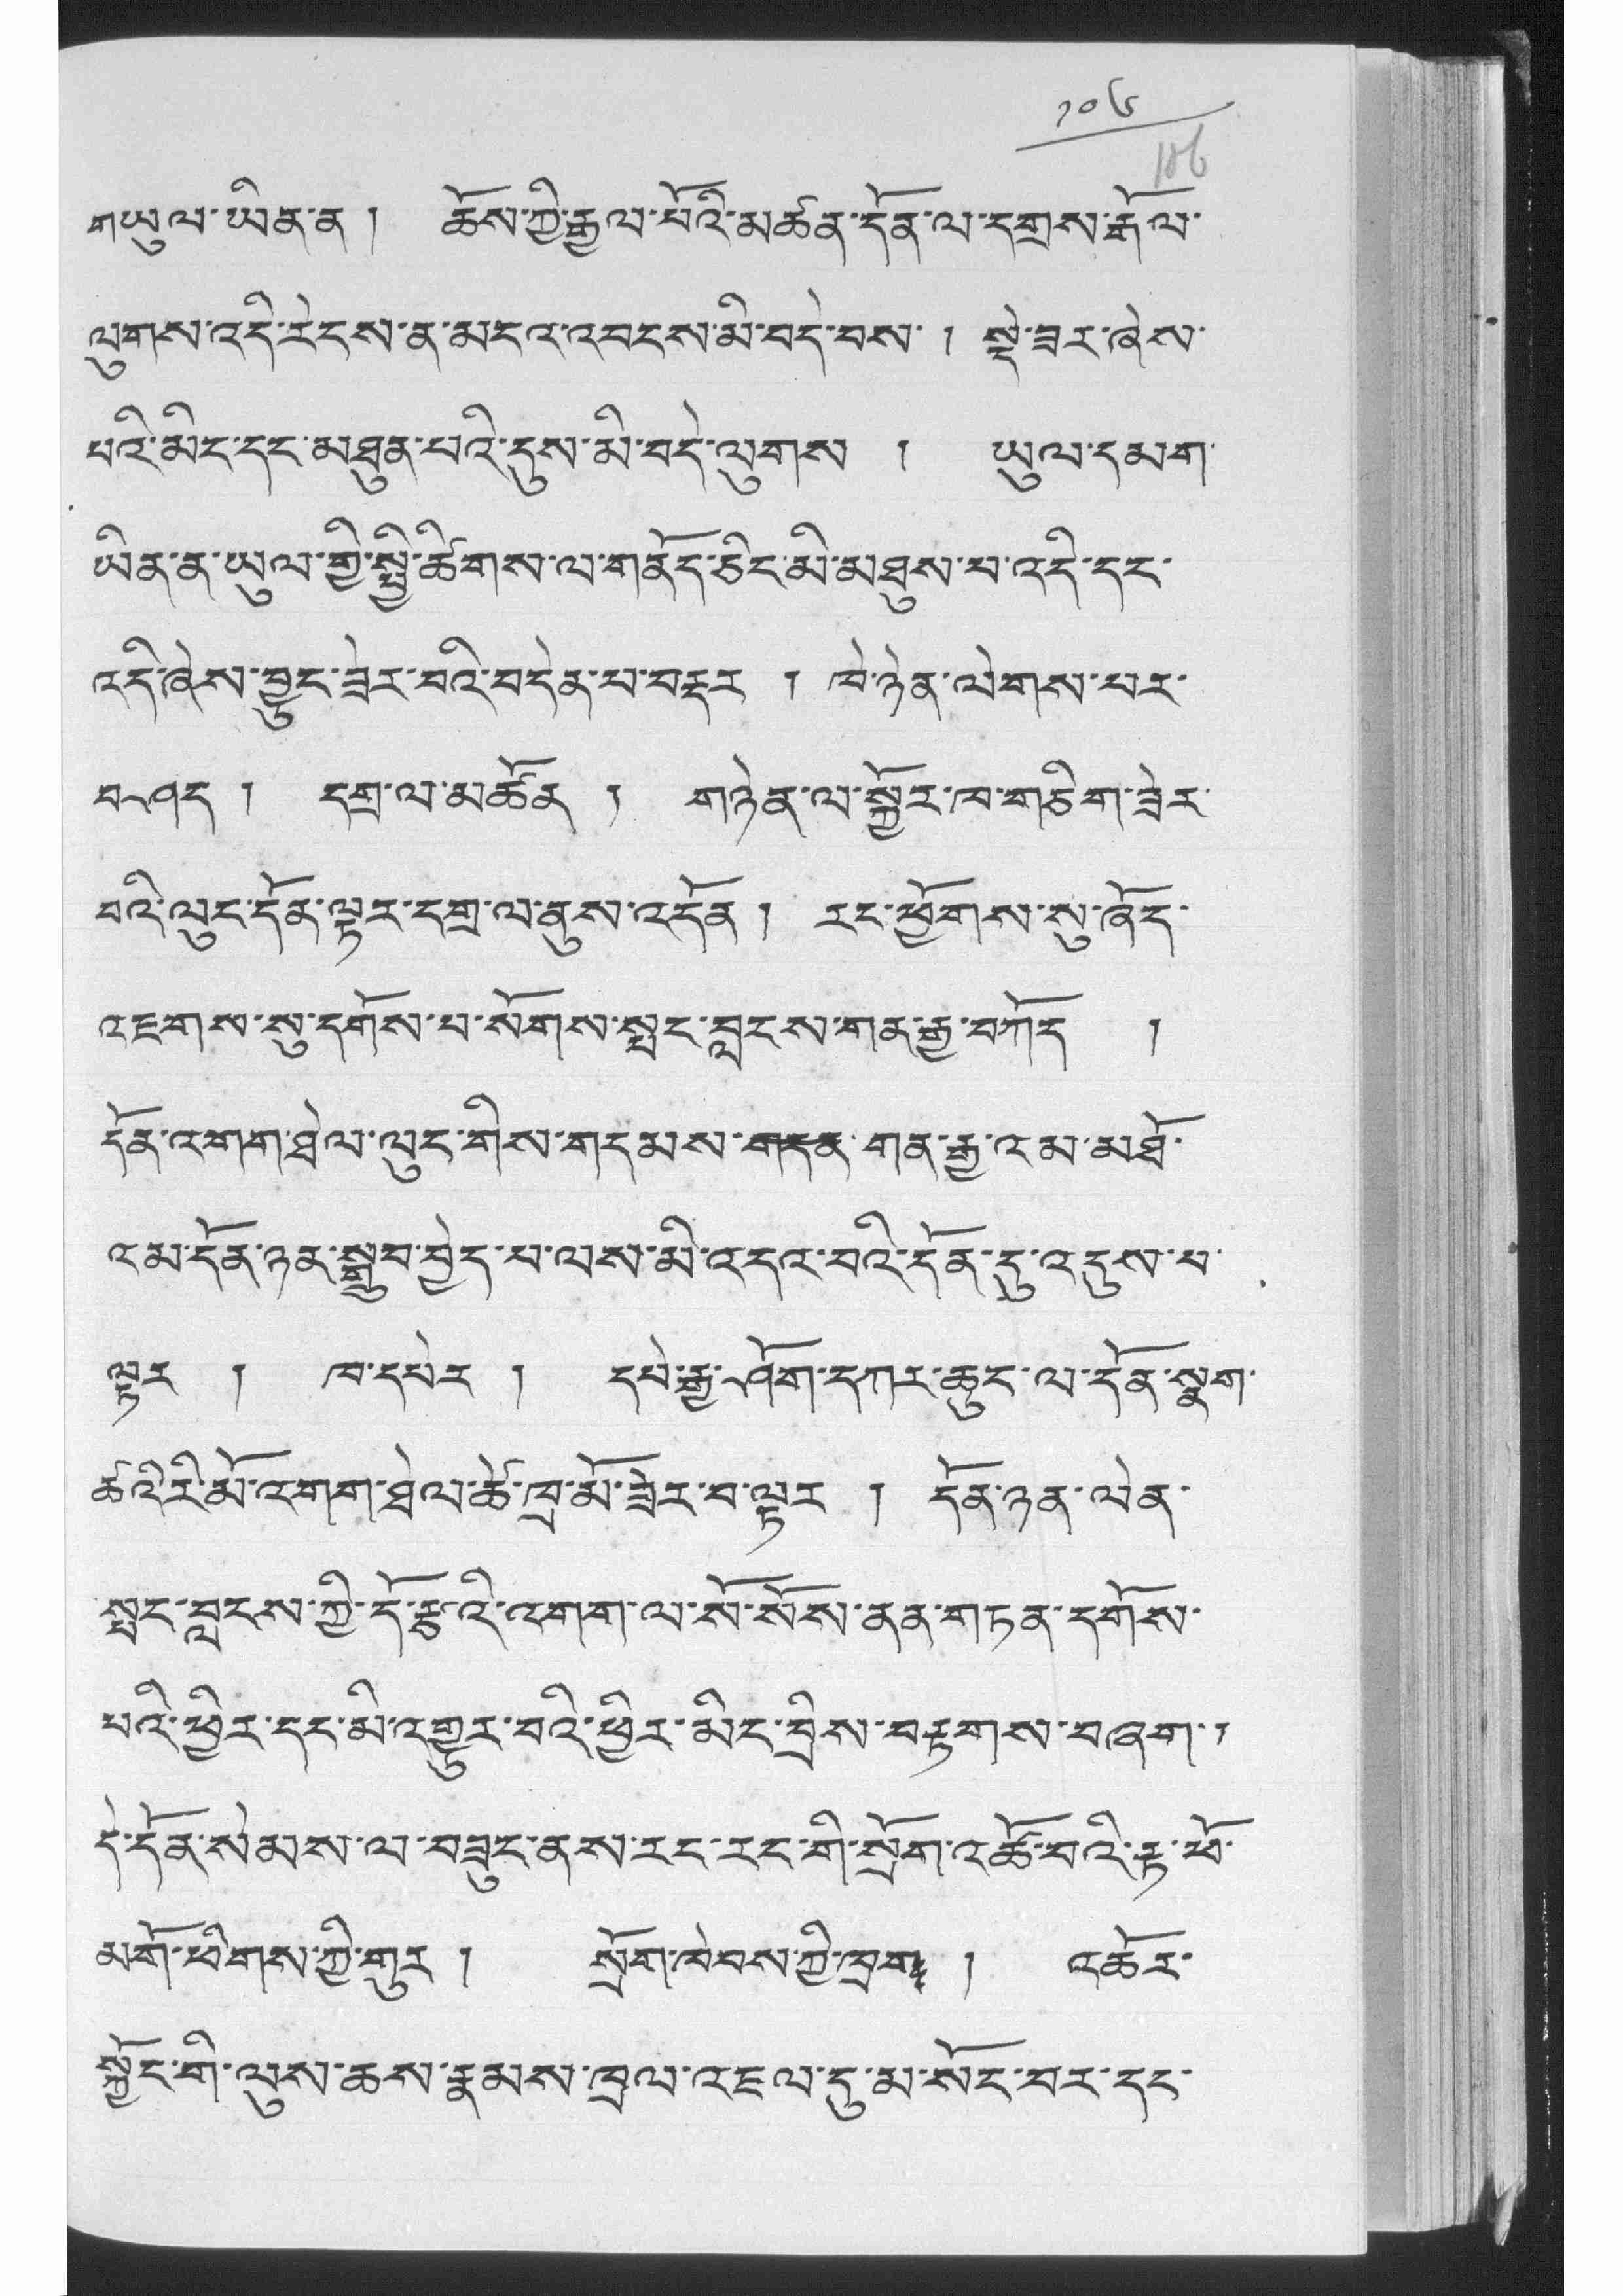 ༡༠༦
106
གཡུལ་ཡིན་ན། ཆོས་ཀྱི་རྒྱལ་པོའི་མཚན་དོན་ལ་དགྲས་རྒོལ་
ལུགས་འདི་རེངས་ན་མངའ་འབངས་མི་བདེ་བས་། སྡེ་ཟར་ཞེས་
པའི་མིང་དང་མཐུན་པའི་དུས་མི་བདེ་ལུགས། ཡུལ་དམག་
ཡིན་ན་ཡུལ་གྱི་སྤྱི་ཚིགས་ལ་གནོད་ཅིང་མི་མཐུས་པ་འདི་དང་
འདི་ཞེས་བྱུང་ཟེར་བའི་བདེན་པ་བརྡར། ཁེ་ཉེན་ལེགས་པར་
བཤད། དགྲ་ལ་མཚོན། གཉེན་ལ་སྐྱོར་ཁ་གཅིག་ཟེར་
བའི་ལུང་དོན་ལྟར་དགྲ་ལ་ནུས་འདོན། རང་ཕྱོགས་སུ་ཞོད་
འཇགས་སུ་དགོས་པ་སོགས་སྤང་བླངས་གན་རྒྱ་བཀོད།
དོན་འགག་ཐེལ་ལུང་གིས་གདམས་གན་རྒྱ་འམ་མཐོ་
འམ་དོན་ཉན་སྒྲུབ་བྱེད་པ་ལས་མི་འདའ་བའི་དོན་དུ་འདུས་པ་
ལྟར། ཁ་དཔེར། དཔེ་རྒྱ་ཤོག་དཀར་ཆུང་ལ་དོན་སྣག་
ཚའི་རི་མོ་འགག་ཐེལ་ཚེ་ཁྲ་མོ་ཟེར་བ་ལྟར། དོན་ཉན་ལེན་
སྤང་བླངས་ཀྱི་དོ་རྩའི་འགག་ལ་སོ་སོས་ནན་གཏན་དགོས་
པའི་ཕྱིར་དང་མི་འགྱུར་བའི་ཕྱིར་མིང་བྲིས་བརྟགས་བཞག།
དེ་དོན་སེམས་ལ་བཟུང་ནས་རང་རང་གི་སྲོག་འཚོ་བའི་རྟ་ཕོ་
མགོ་ཕེགས་ཀྱི་གུར། སྲོག་ཁེབས་ཀྱི་ཁྲབ། འཚོར་
སྐྱོང་གི་ལུས་ཆས་རྣམས་ཁྲལ་འཇལ་དུ་མ་སོང་བར་དང་